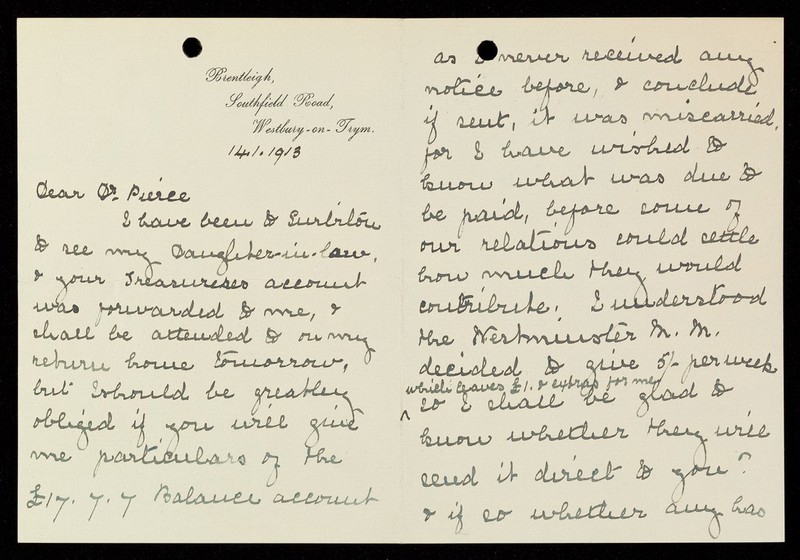 Brentleigh,
Southfield Road,
Westbury-on-Trym.
14.1.1913
Dear Dr. Pierce
I have been to Surbiton
to see my Daughter-in-law,
& your Treasureres account
was forwarded to me, &
shall be attended to on my
return home tomorrow,
but I should be greatley
obliged if you will give
me particulars of the
£17. 7. 7 Balance account
as I never received any
notice before, & conclude
if sent, it was miscarried,
for I have wished to
know what was due to
be paid, before some of
our relations could settle
how much they would
contribute. I understood
the Westminster M. M.
decided to give 5/- per week
which leaves £1. & extras for me
so I shall be glad to
know whether they will
send it direct to you?
& if so whether any has